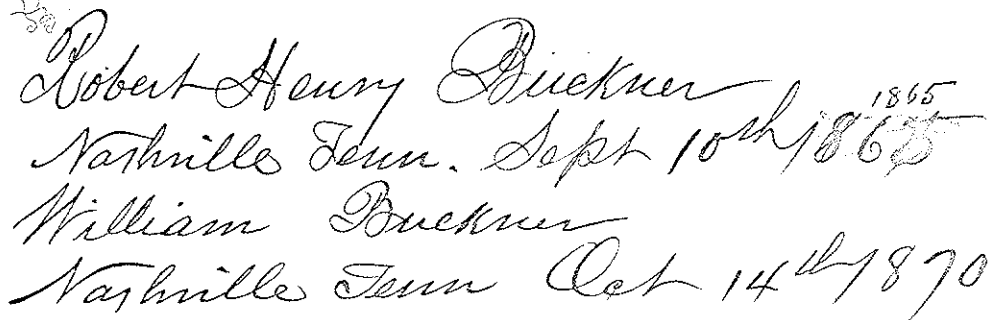 Robert Henry Buckner
1865
Nashville Tenn. Sept 10th 1865
William Buckner
Nashville Tenn Oct 14th 1870